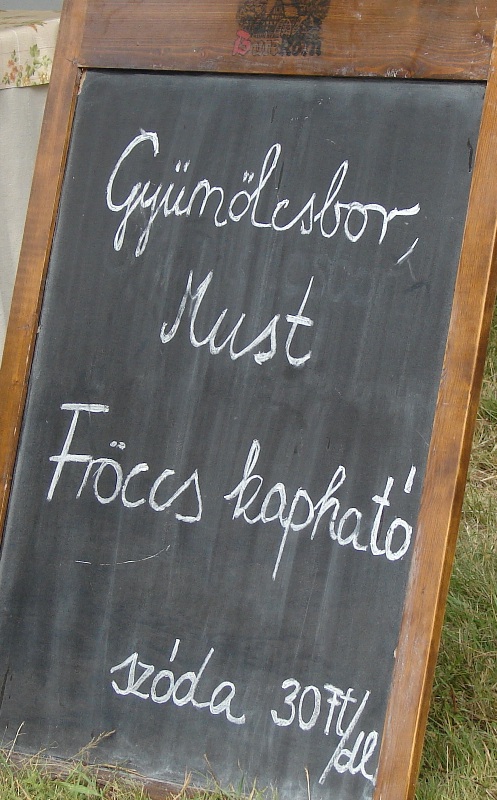 Gyümölcsbor,
Must
Fröccs kapható
szóda 30 Ft/dl